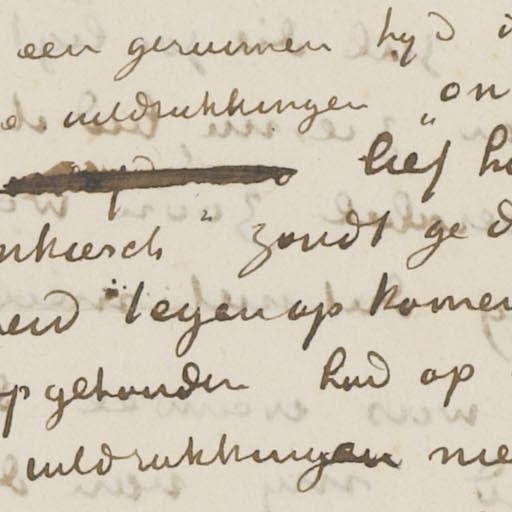 een geruimen tyd
uitdrukkingen on
lief h
nkiesch" zoudt ge d
tegen op komen
opgehouden had op
uitdrukkingen nie